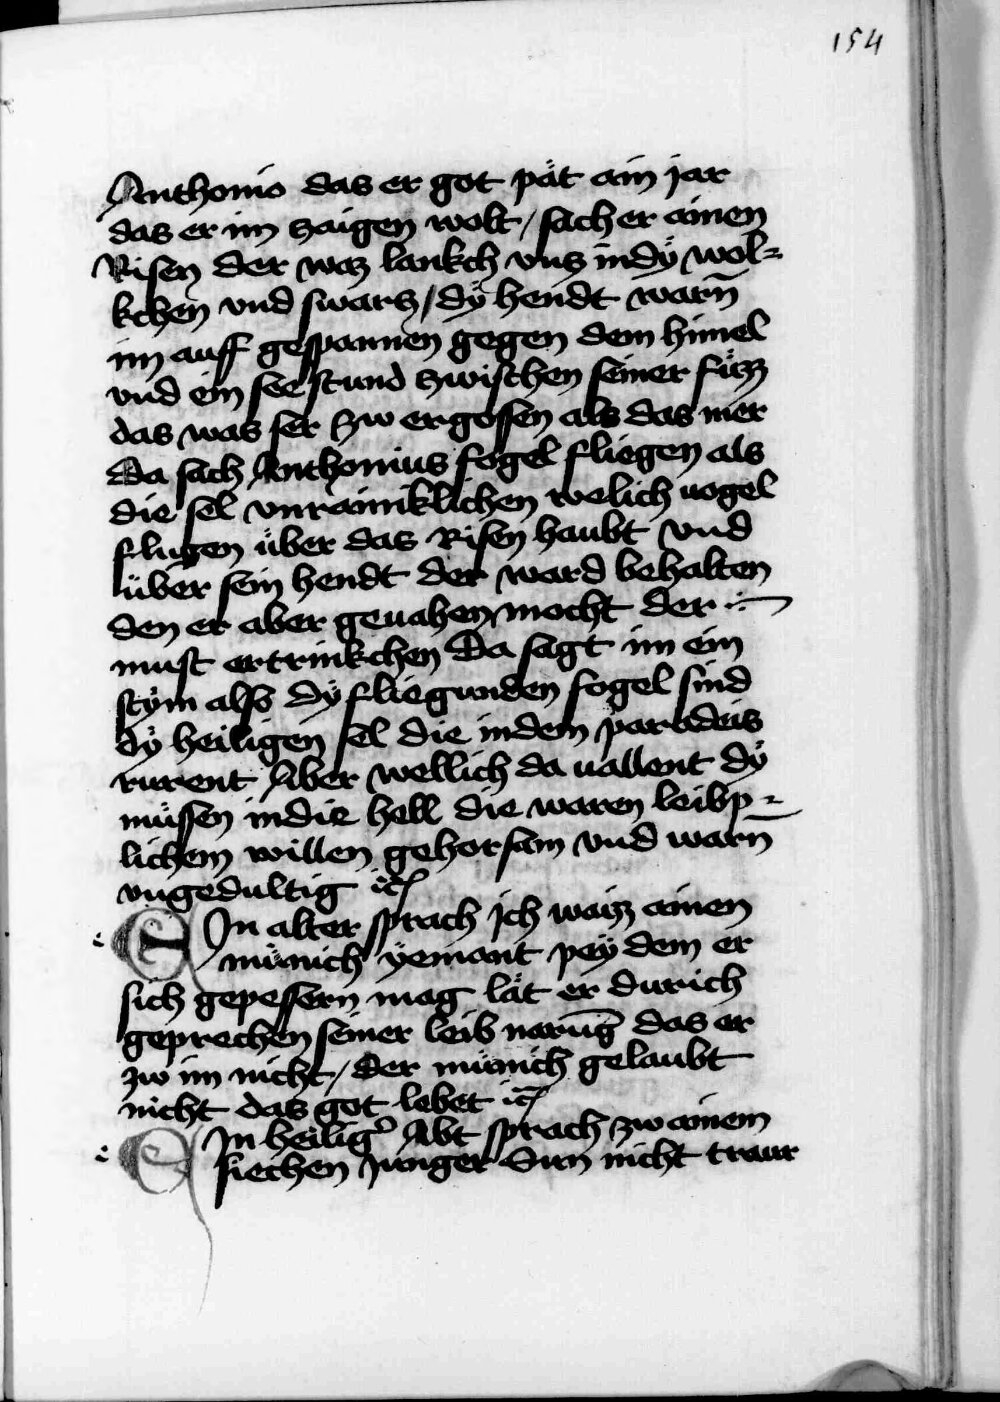 154
Anthonio das er got pät ain jar
das er im zaigen wolt / sach er ainen
Risen der waz lankch vnz in dÿ wol⸗
kchen vnd swarz / dÿ hendt warn̄
im auff gespannen gegen dem himel
vnd ein see stund zwischen seiner füzz
das was ser zw ergossen als das mer
Da sach Anthonius fogel fliegen als
die sel vnrainiklichen welich uogel
flugen über das Risen haubt vnd
über sein hendt der ward behalten
den er aber geuahen mocht der
must ertrinkchen Da sagt im ein
stÿm also dÿ fliegunden fogel sind
dÿ heiligen sel die in dem paradeis
rurent Aber wellich da uallent dÿ
müssen in die hell die waren leibp⸗
lichem willen gehorsam vnd warn̄
vngedultig ꝛc̄
EIn alter sprach ich waiz ainen
münich ÿemant peÿ dem er
sich gepessern mag lät er durich
geprechen seiner leib narūg das er
zw im nicht / der münich gelaubt
nicht das got lebet ꝛc̄
EIn heilig᷑ Abt sprach zw ainem
siechen Junger Sun nicht traur